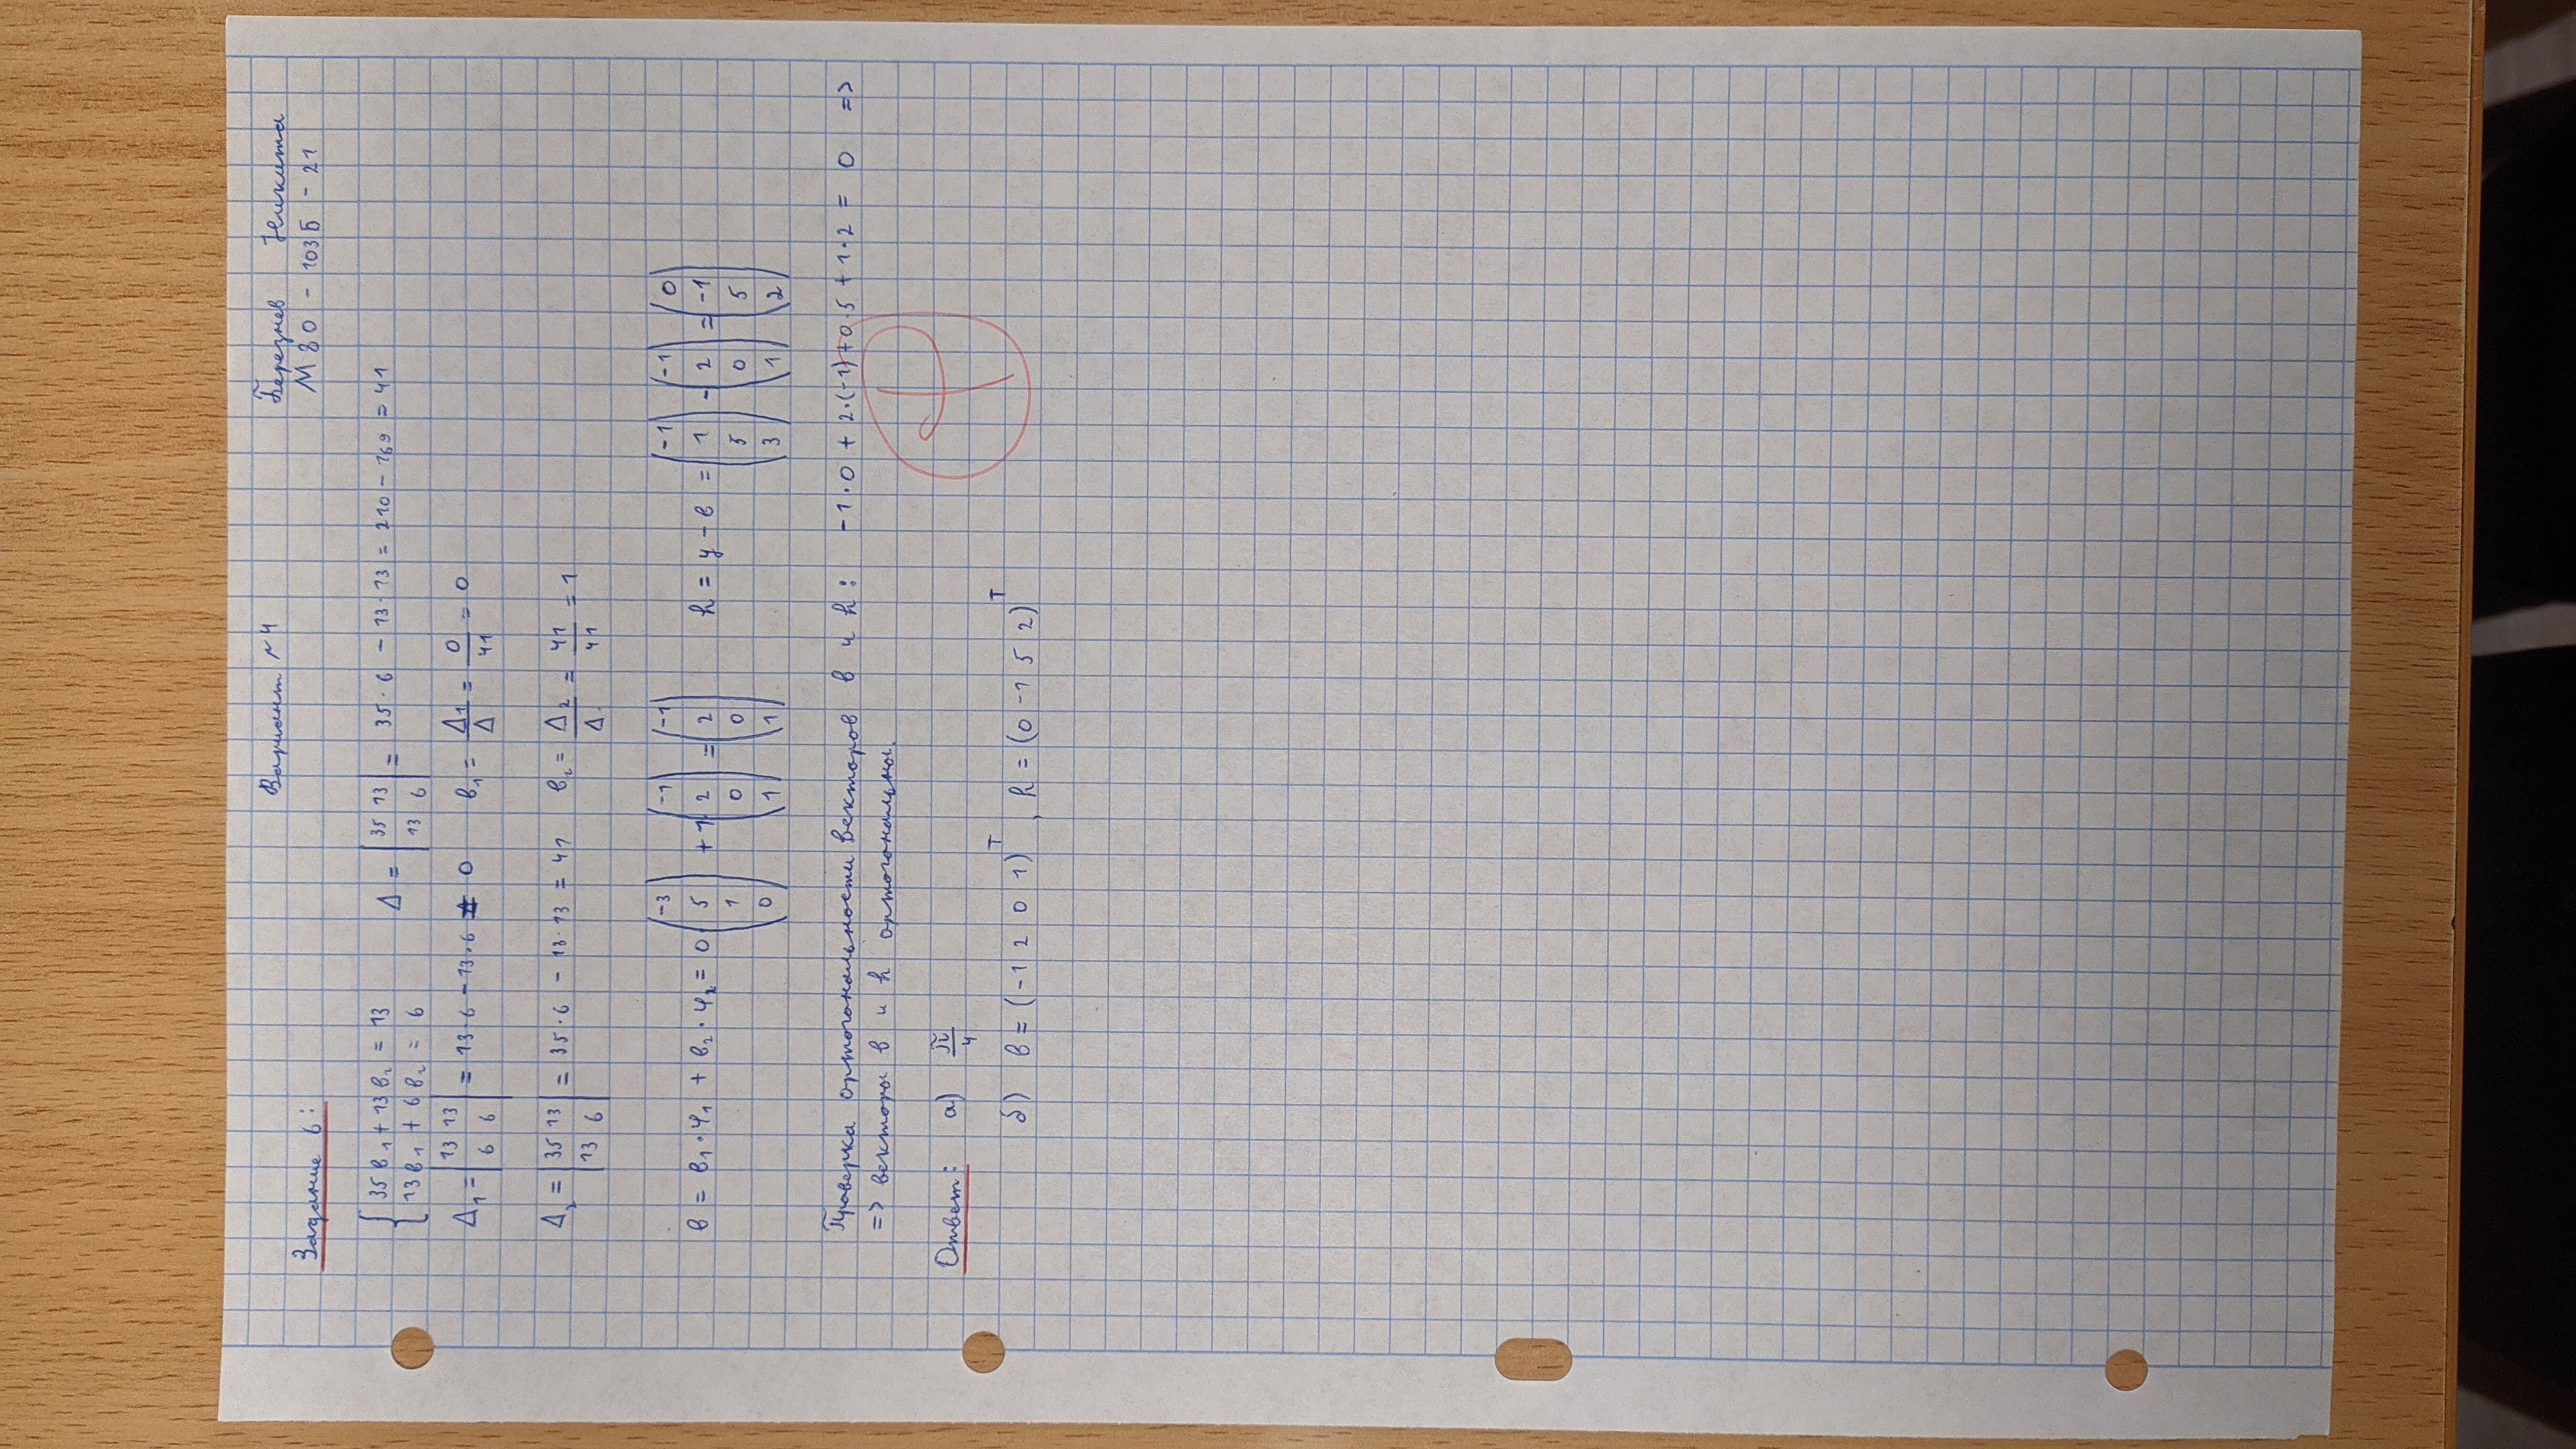 Вариант №4
Березнев Никита
Задание 6:
М80 - 103Б - 21
{ 35в₁ + 13в₂ = 13
13в₁ + 6в₂ = 6
Δ = | 35 13 | = 35·6 - 13·13 = 210 - 169 = 41
| 13 6 |
Δ₁ = | 13 13 | = 13·6 - 13·6 = 0 в₁ = Δ₁/Δ = 0/41 = 0
| 6 6 |
Δ₂ = | 35 13 | = 35·6 - 13·13 = 41 в₂ = Δ₂/Δ = 41/41 = 1
| 13 6 |
в = в₁·φ₁ + в₂·φ₂ = 0·(-3 5 1 0) + 1·(-1 2 0 1) = (-1 2 0 1) h = y - в = (-1 1 5 3) - (-1 2 0 1) = (0 -1 5 2)
Проверка ортогональности векторов в и h: -1·0 + 2·(-1) + 0·5 + 1·2 = 0 =>
=> векторы в и h ортогональны.
+
Ответ: а) π/4
б) в = (-1 2 0 1)ᵀ, h = (0 -1 5 2)ᵀ